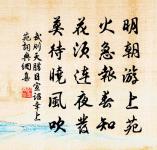 明朝游上苑
火急報春知
花須連夜發
莫待曉風吹
武則天臘日宣詔幸上
苑